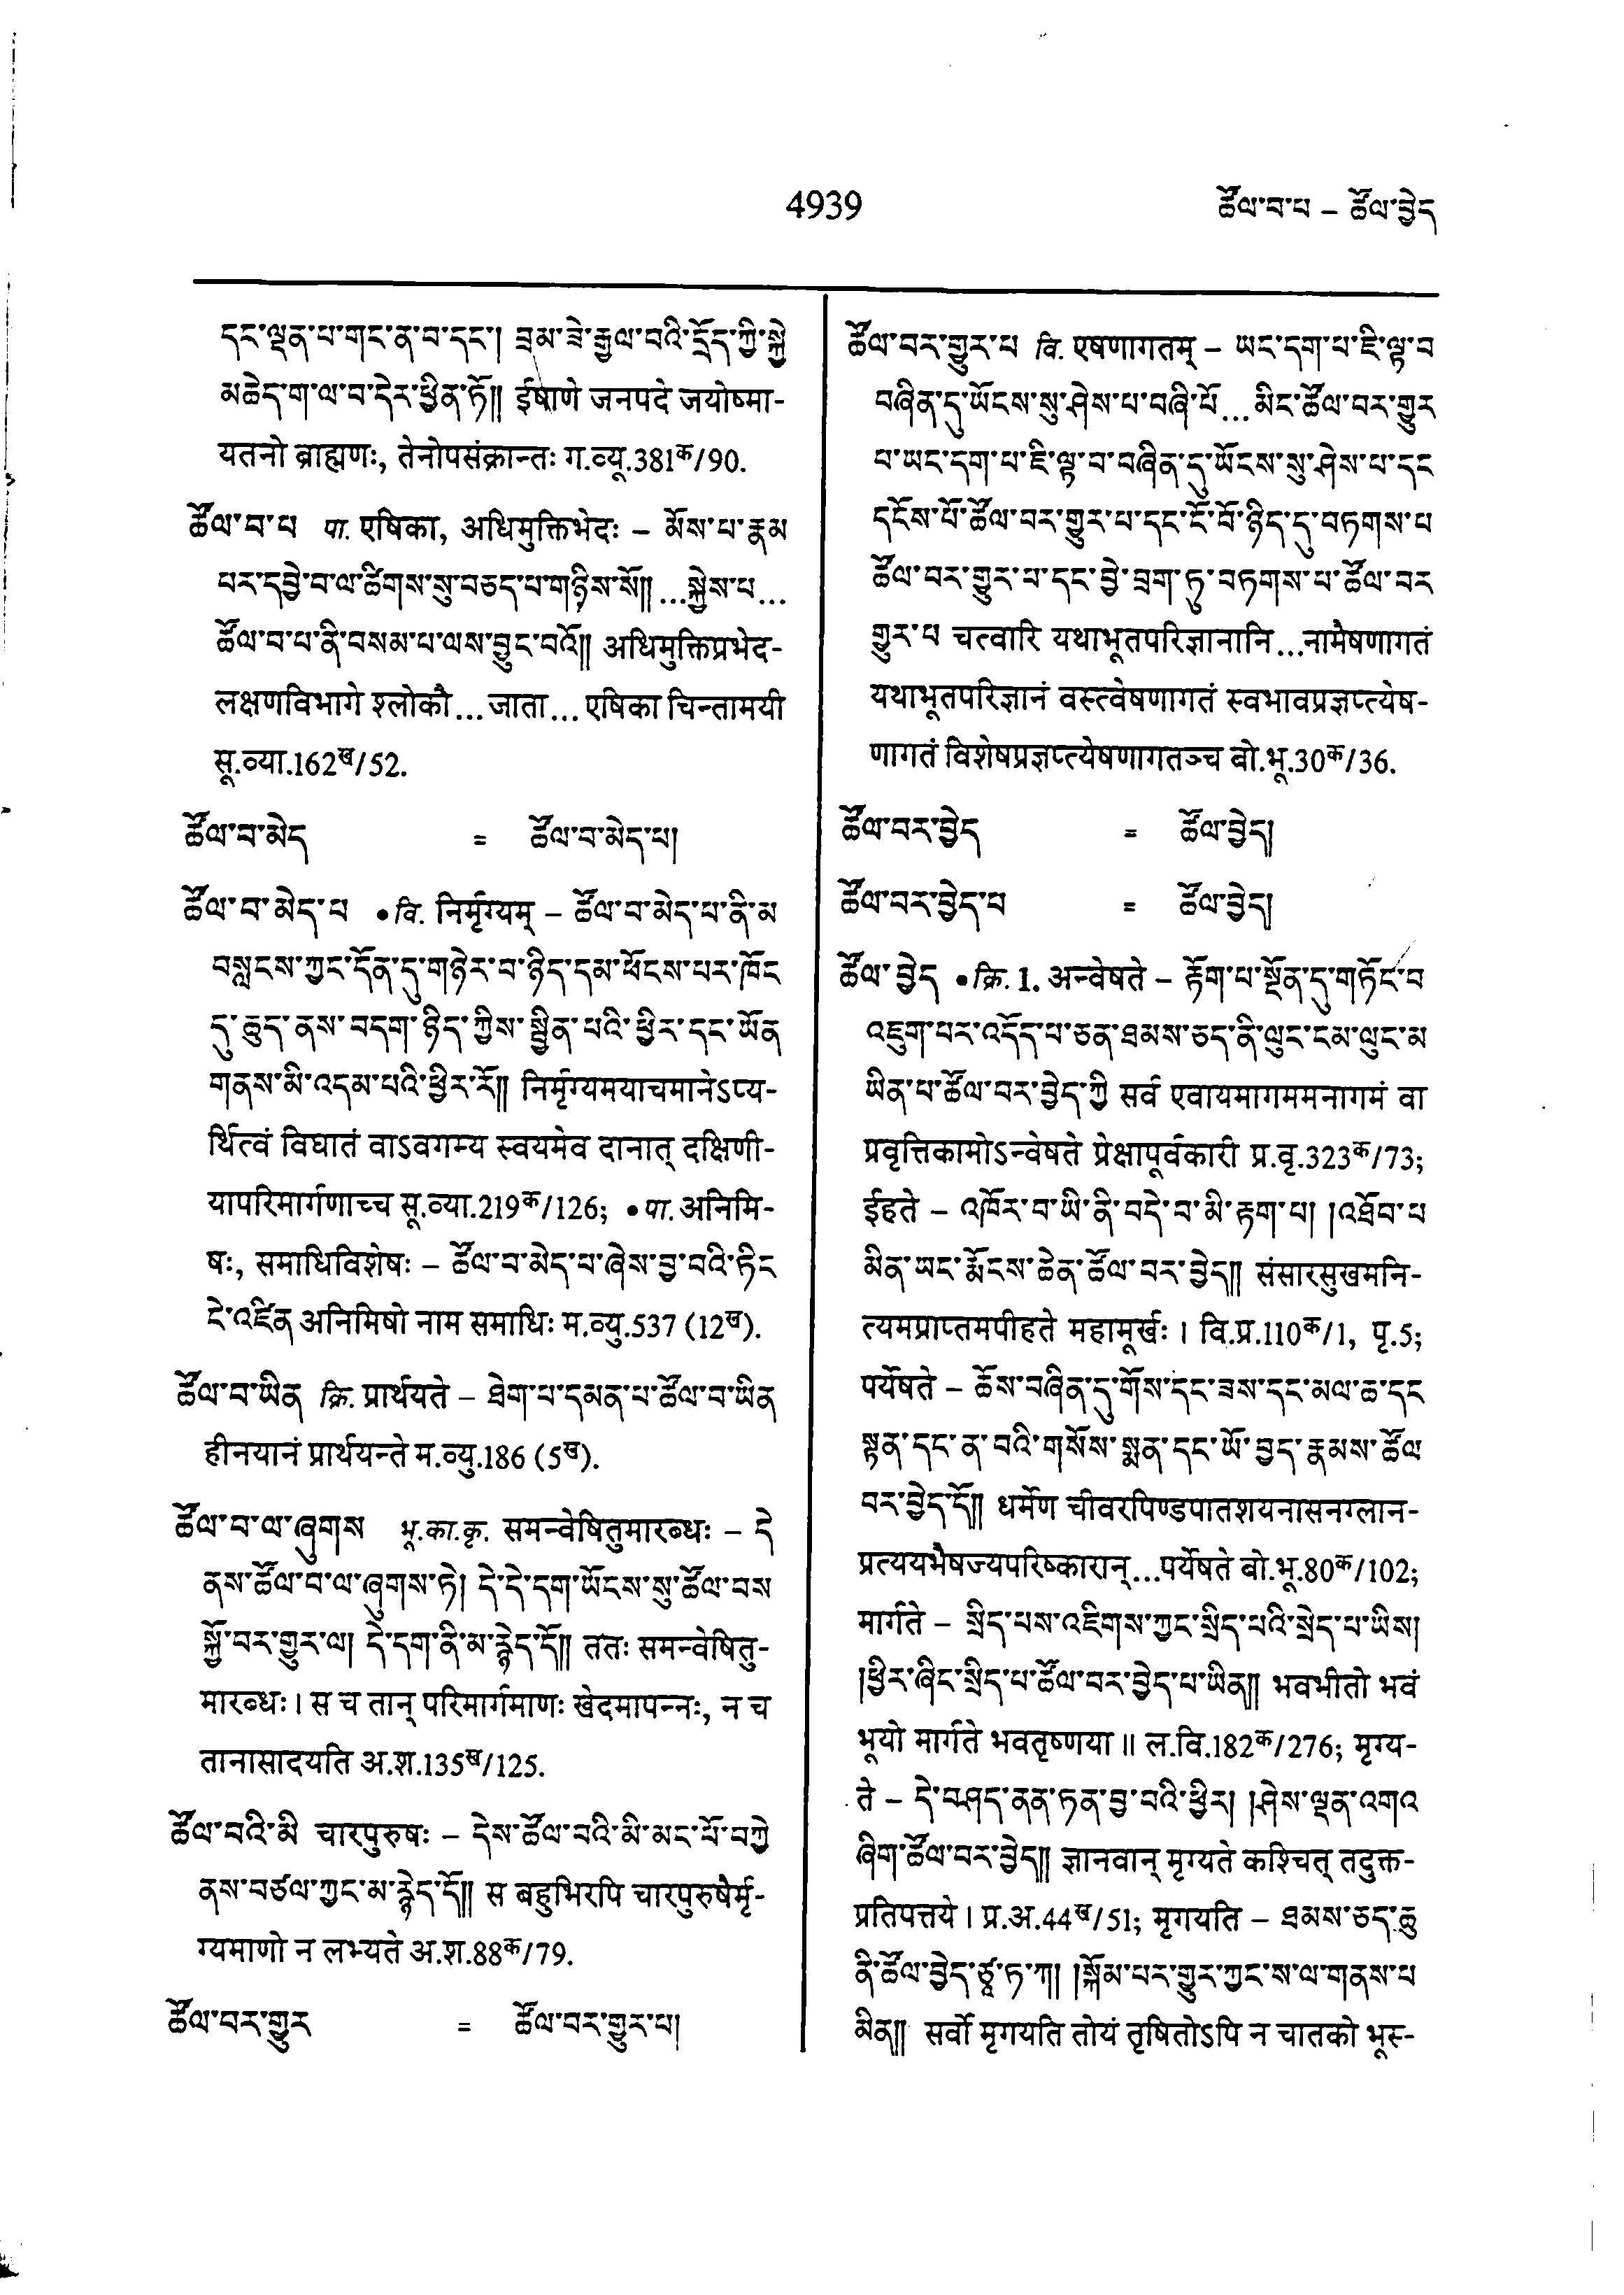 4939
ཚོལ་བ་པ – ཚོལ་བྱེད
དང་ལྡན་པ་གང་ན་བ་དང་། བྲམ་ཟེ་རྒྱལ་བའི་དྲོད་ཀྱི་སྐྱེ
མཆེད་ག་ལ་བ་དེར་ཕྱིན་ཏོ༎ ईषाणे जनपदे जयोष्मा-
यतनो ब्राह्मणः, तेनोपसंक्रान्तः ग.व्यू.381क/90.
ཚོལ་བ་པ पा. एषिका, अधिमुक्तिभेदः – མོས་པ་རྣམ
པར་དབྱེ་བ་ལ་ཚིགས་སུ་བཅད་པ་གཉིས་སོ༎ ...སྐྱེས་པ...
ཚོལ་བ་པ་ནི་བསམ་པ་ལས་བྱུང་བའོ༎ अधिमुक्तिप्रभेद-
लक्षणविभागे श्लोकौ... जाता... एषिका चिन्तामयी
सू.व्या.162ख/52.
ཚོལ་བ་མེད = ཚོལ་བ་མེད་པ།
ཚོལ་བ་མེད་པ •वि. निर्मृग्यम् – ཚོལ་བ་མེད་པ་ནི་མ
བསླངས་ཀྱང་དོན་དུ་གཉེར་བ་ཉིད་དམ་ཕོངས་པར་ཁོང
དུ་ཆུད་ནས་བདག་ཉིད་ཀྱིས་སྦྱིན་པའི་ཕྱིར་དང་ཡོན
གནས་མི་འདམ་པའི་ཕྱིར་རོ༎ निर्मृग्यमयाचमानेऽप्य-
र्थित्वं विघातं वाऽवगम्य स्वयमेव दानात् दक्षिणी-
यापरिमार्गणाच्च सू.व्या.219क/126; •पा. अनिमि-
षः, समाधिविशेषः – ཚོལ་བ་མེད་པ་ཞེས་བྱ་བའི་ཏིང
ངེ་འཛིན अनिमिषो नाम समाधिः म.व्यु.537 (12ख).
ཚོལ་བ་ཡིན क्रि. प्रार्थयते – ཐེག་པ་དམན་པ་ཚོལ་བ་ཡིན
हीनयानं प्रार्थयन्ते म.व्यु.186 (5ख).
ཚོལ་བ་ལ་ཞུགས भू.का.कृ. समन्वेषितुमारब्धः – དེ
ནས་ཚོལ་བ་ལ་ཞུགས་ཏེ། དེ་དེ་དག་ཡོངས་སུ་ཚོལ་བས
སྐྱོ་བར་གྱུར་ལ། དེ་དག་ནི་མ་རྙེད་དོ༎ ततः समन्वेषितु-
मारब्धः। स च तान् परिमार्गमाणः खेदमापन्नः, न च
तानासादयति अ.श.135ख/125.
ཚོལ་བའི་མི चारपुरुषः – དེས་ཚོལ་བའི་མི་མང་པོ་བཀྱེ
ནས་བཙལ་ཀྱང་མ་རྙེད་དོ༎ स बहुभिरपि चारपुरुषैर्मृ-
ग्यमाणो न लभ्यते अ.श.88क/79.
ཚོལ་བར་གྱུར = ཚོལ་བར་གྱུར་པ།
ཚོལ་བར་གྱུར་པ वि. एषणागतम् – ཡང་དག་པ་ཇི་ལྟ་བ
བཞིན་དུ་ཡོངས་སུ་ཤེས་པ་བཞི་པོ...མིང་ཚོལ་བར་གྱུར
པ་ཡང་དག་པ་ཇི་ལྟ་བ་བཞིན་དུ་ཡོངས་སུ་ཤེས་པ་དང
དངོས་པོ་ཚོལ་བར་གྱུར་པ་དང་ངོ་བོ་ཉིད་དུ་བཏགས་པ
ཚོལ་བར་གྱུར་པ་དང་བྱེ་བྲག་ཏུ་བཏགས་པ་ཚོལ་བར
གྱུར་པ चत्वारि यथाभूतपरिज्ञानानि...नामैषणागतं
यथाभूतपरिज्ञानं वस्त्वेषणागतं स्वभावप्रज्ञप्त्येष-
णागतं विशेषप्रज्ञप्त्येषणागतञ्च बो.भू.30क/36.
ཚོལ་བར་བྱེད = ཚོལ་བྱེད།
ཚོལ་བར་བྱེད་པ = ཚོལ་བྱེད།
ཚོལ་བྱེད •क्रि. 1. अन्वेषते – རྟོག་པ་སྔོན་དུ་གཏོང་བ
འཇུག་པར་འདོད་པ་ཅན་ཐམས་ཅད་ནི་ལུང་ངམ་ལུང་མ
ཡིན་པ་ཚོལ་བར་བྱེད་ཀྱི सर्व एवायमागममनागमं वा
प्रवृत्तिकामोऽन्वेषते प्रेक्षापूर्वकारी प्र.वृ.323क/73;
ईहते – འཁོར་བ་ཡི་ནི་བདེ་བ་མི་རྟག་པ། །འཐོབ་པ
མིན་ཡང་རྨོངས་ཆེན་ཚོལ་བར་བྱེད༎ संसारसुखमनि-
त्यमप्राप्तमपीहते महामूर्खः। वि.प्र.110क/1, पृ.5;
पर्येषते – ཆོས་བཞིན་དུ་གོས་དང་ཟས་དང་མལ་ཆ་དང
སྟན་དང་ན་བའི་གསོས་སྨན་དང་ཡོ་བྱད་རྣམས་ཚོལ
བར་བྱེད་དོ༎ धर्मेण चीवरपिण्डपातशयनासनग्लान-
प्रत्ययभैषज्यपरिष्कारान्...पर्येषते बो.भू.80क/102;
मार्गते – སྲིད་པས་འཇིགས་ཀྱང་སྲིད་པའི་སྲེད་པ་ཡིས།
།ཕྱིར་ཞིང་སྲིད་པ་ཚོལ་བར་བྱེད་པ་ཡིན༎ भवभीतो भवं
भूयो मार्गते भवतृष्णया॥ ल.वि.182क/276; मृग्य-
ते – དེ་བཤད་ནན་ཏན་བྱ་བའི་ཕྱིར། །ཤེས་ལྡན་འགའ
ཞིག་ཚོལ་བར་བྱེད༎ ज्ञानवान् मृग्यते कश्चित् तदुक्त-
प्रतिपत्तये। प्र.अ.44ख/51; मृगयति – ཐམས་ཅད་ཆུ
ནི་ཚོལ་བྱེད་ཙཱ་ཏ་ཀ། །སྐོམ་པར་གྱུར་ཀྱང་ས་ལ་གནས་པ
མིན༎ सर्वो मृगयति तोयं तृषितोऽपि न चातको भूस्-